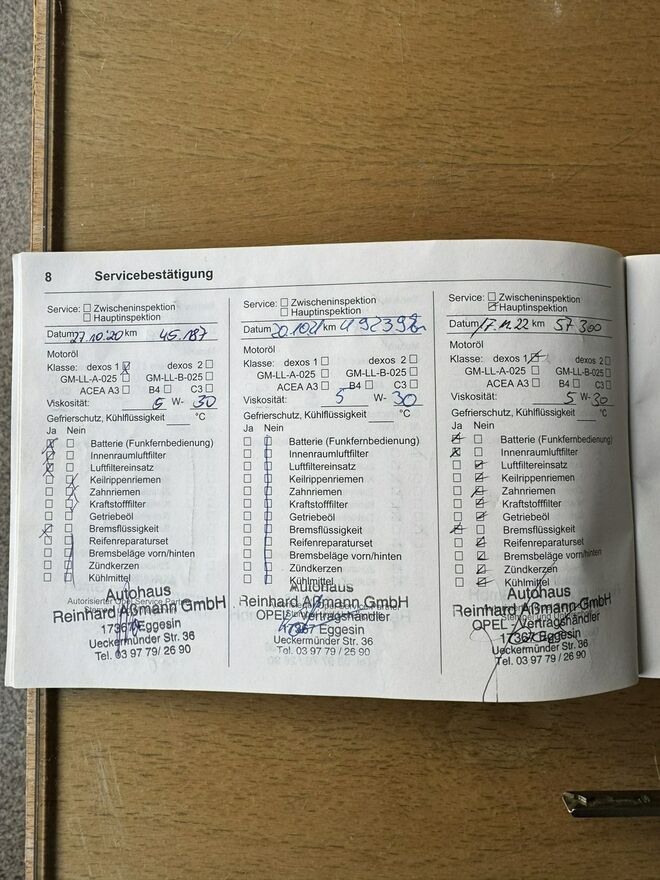 8 Servicebestätigung
Service: ☐ Zwischeninspektion
☐ Hauptinspektion
Datum 27.10.20 km 45.187
Motoröl
Klasse: dexos 1 ☒ dexos 2 ☐
GM-LL-A-025 ☐ GM-LL-B-025 ☐
ACEA A3 ☐ B4 ☐ C3 ☐
Viskosität: 5 W- 30
Gefrierschutz, Kühlflüssigkeit °C
Ja Nein
Batterie (Funkfernbedienung)
Innenraumluftfilter
Luftfiltereinsatz
Keilrippenriemen
Zahnriemen
Kraftstofffilter
Getriebeöl
Bremsflüssigkeit
Reifenreparaturset
Bremsbeläge vorn/hinten
Zündkerzen
Kühlmittel
Autohaus
Reinhard Aßmann GmbH
17367 Eggesin
Ueckermünder Str. 36
Tel. 03 97 79/ 26 90
Service: ☐ Zwischeninspektion
☐ Hauptinspektion
Datum 20.10.21 km 49239 km
Motoröl
Klasse: dexos 1 ☐ dexos 2 ☐
GM-LL-A-025 ☐ GM-LL-B-025 ☐
ACEA A3 ☐ B4 ☐ C3 ☐
Viskosität: 5 W- 30
Gefrierschutz, Kühlflüssigkeit °C
Ja Nein
Batterie (Funkfernbedienung)
Innenraumluftfilter
Luftfiltereinsatz
Keilrippenriemen
Zahnriemen
Kraftstofffilter
Getriebeöl
Bremsflüssigkeit
Reifenreparaturset
Bremsbeläge vorn/hinten
Zündkerzen
Kühlmittel
Autohaus
Reinhard Aßmann GmbH
OPEL - Vertragshändler
17367 Eggesin
Ueckermünder Str. 36
Tel. 03 97 79 / 26 90
Service: ☐ Zwischeninspektion
☒ Hauptinspektion
Datum 17.11.22 km 57 300
Motoröl
Klasse: dexos 1 ☒ dexos 2 ☐
GM-LL-A-025 ☐ GM-LL-B-025 ☐
ACEA A3 ☐ B4 ☐ C3 ☐
Viskosität: 5 W- 30
Gefrierschutz, Kühlflüssigkeit °C
Ja Nein
Batterie (Funkfernbedienung)
Innenraumluftfilter
Luftfiltereinsatz
Keilrippenriemen
Zahnriemen
Kraftstofffilter
Getriebeöl
Bremsflüssigkeit
Reifenreparaturset
Bremsbeläge vorn/hinten
Zündkerzen
Kühlmittel
Autohaus
Reinhard Aßmann GmbH
OPEL - Vertragshändler
17367 Eggesin
Ueckermünder Str. 36
Tel. 03 97 79 / 26 90